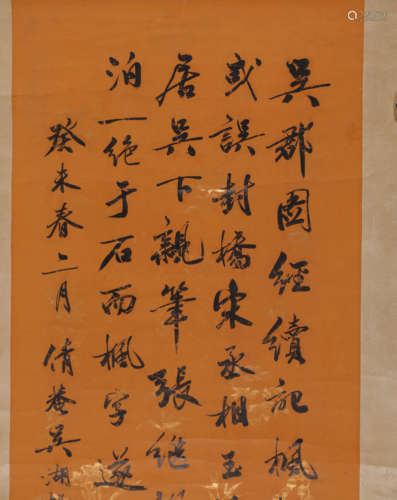 吳郡圖經續記楓
或誤封橋宋丞相王
居吳下親筆張繼
泊一絕于石而楓字遂
癸未春二月倩菴吳湖